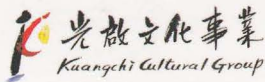 光啟文化事業
Kuangchi Cultural Group